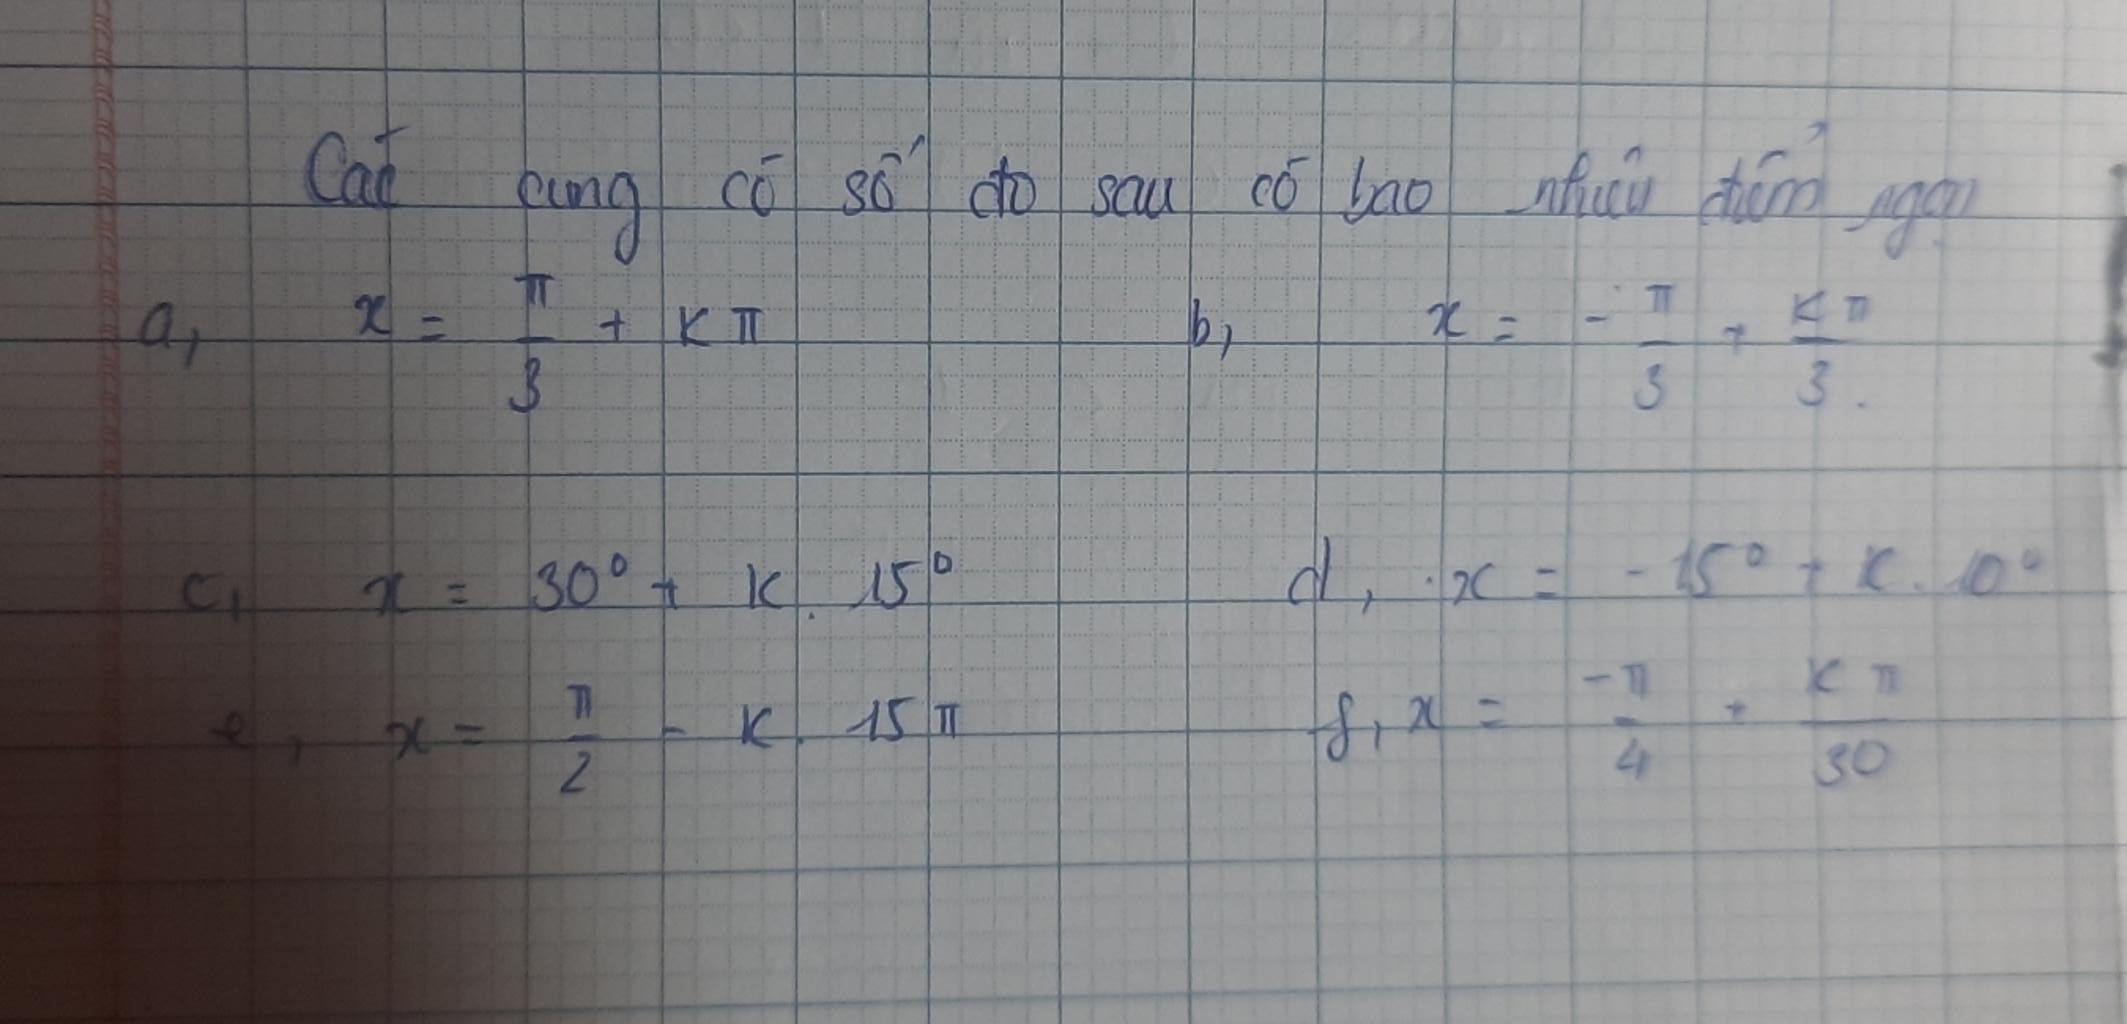 Các cung có số đo sau có bao nhiêu điểm ngọn
a, x = π/3 + kπ b, x = -π/3 + kπ/3.
c, x = 30° + k. 15° d, x = -15° + k. 10°
e, x = π/2 - k. 15π f, x = -π/4 + kπ/30